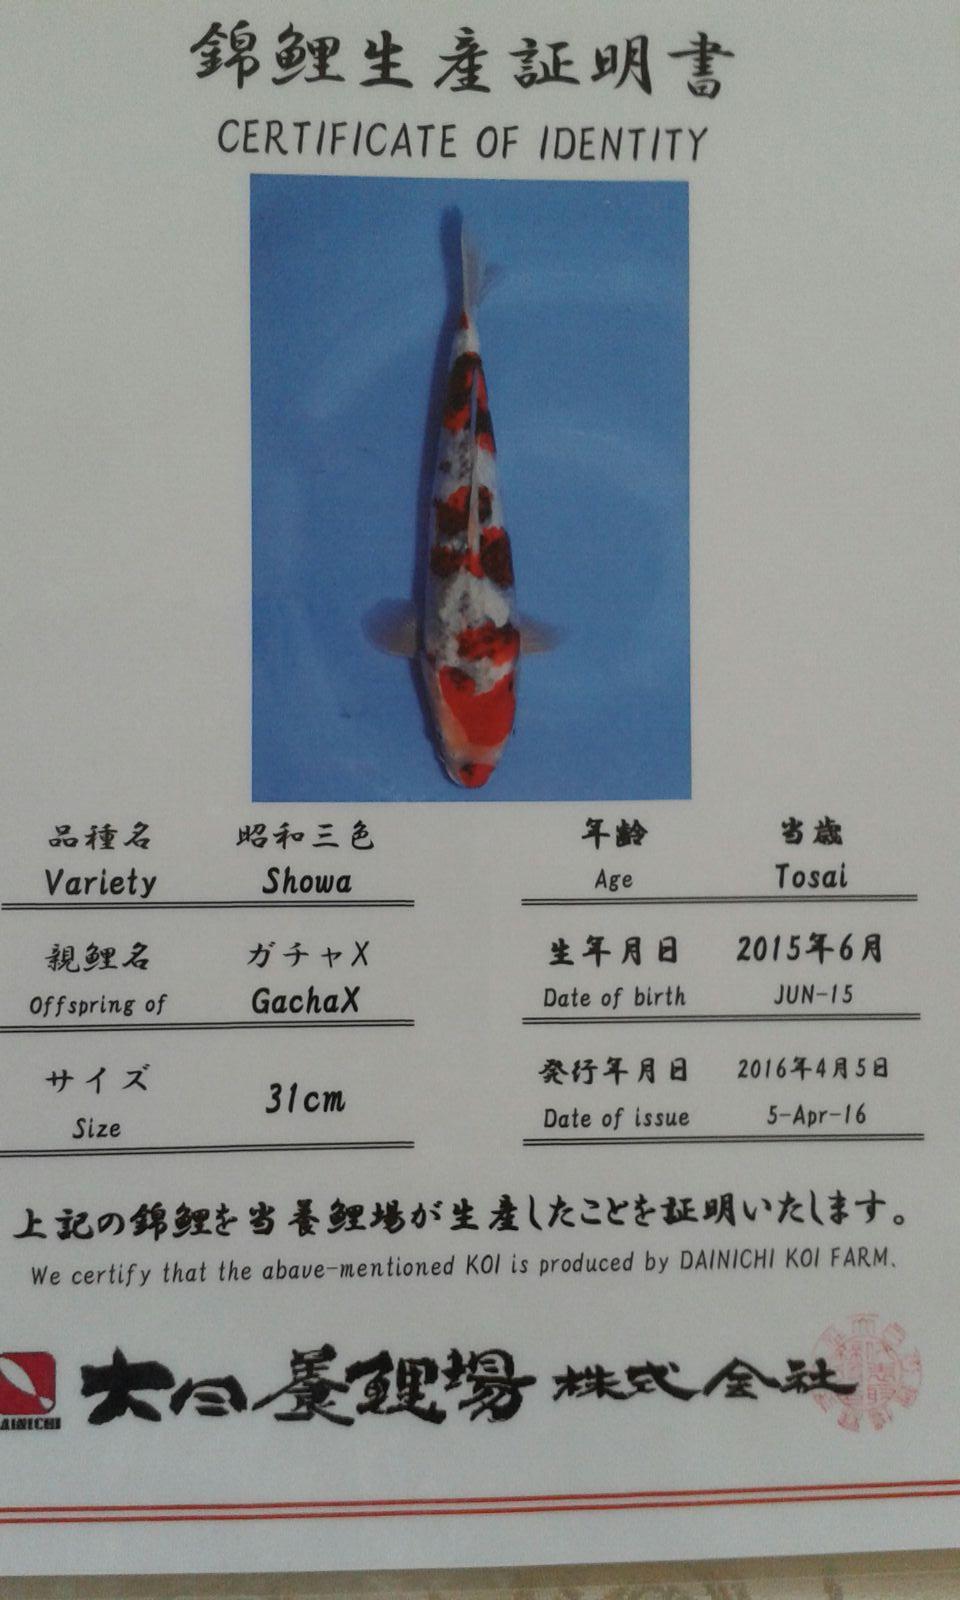 錦鯉生産証明書
CERTIFICATE OF IDENTITY
品種名 昭和三色
Variety Showa
親鯉名 ガチャX
Offspring of GachaX
サイズ
Size 31cm
年齢 当歳
Age Tosai
生年月日 2015年6月
Date of birth JUN-15
発行年月日 2016年4月5日
Date of issue 5-Apr-16
上記の錦鯉を当養鯉場が生産したことを証明いたします。
We certify that the abave-mentioned KOI is produced by DAINICHI KOI FARM.
AINICHI
大日養鯉場 株式会社